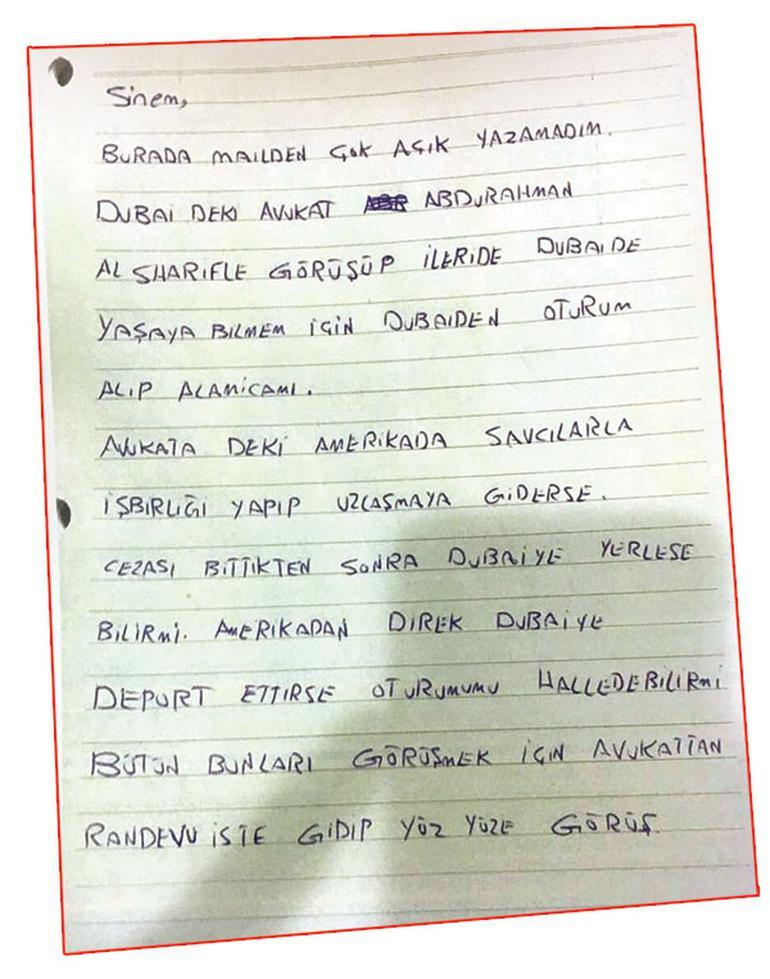 Sinem,
BURADA MAILDEN ÇOK AÇIK YAZAMADIM.
DUBAI DEKI AVUKAT ABDURAHMAN
AL SHARIFLE GÖRÜŞÜP İLERIDE DUBAIDE
YAŞAYA BILMEM IÇIN DUBAIDEN OTURUM
ALIP ALAMİCAMI.
AVUKATA DEKİ AMERIKADA SAVCILARLA
İŞBIRLIĞI YAPIP UZLAŞMAYA GIDERSE.
CEZASI BITTIKTEN SONRA DUBAİYE YERLESE
BILIRMI. AMERIKADAN DIREK DUBAİYE
DEPORT ETTIRSE OTURUMUMU HALLEDEBILIRMI
BÜTÜN BUNLARI GÖRÜŞMEK IÇIN AVUKATTAN
RANDEVU ISTE GIDIP YÜZ YÜZE GÖRÜŞ.